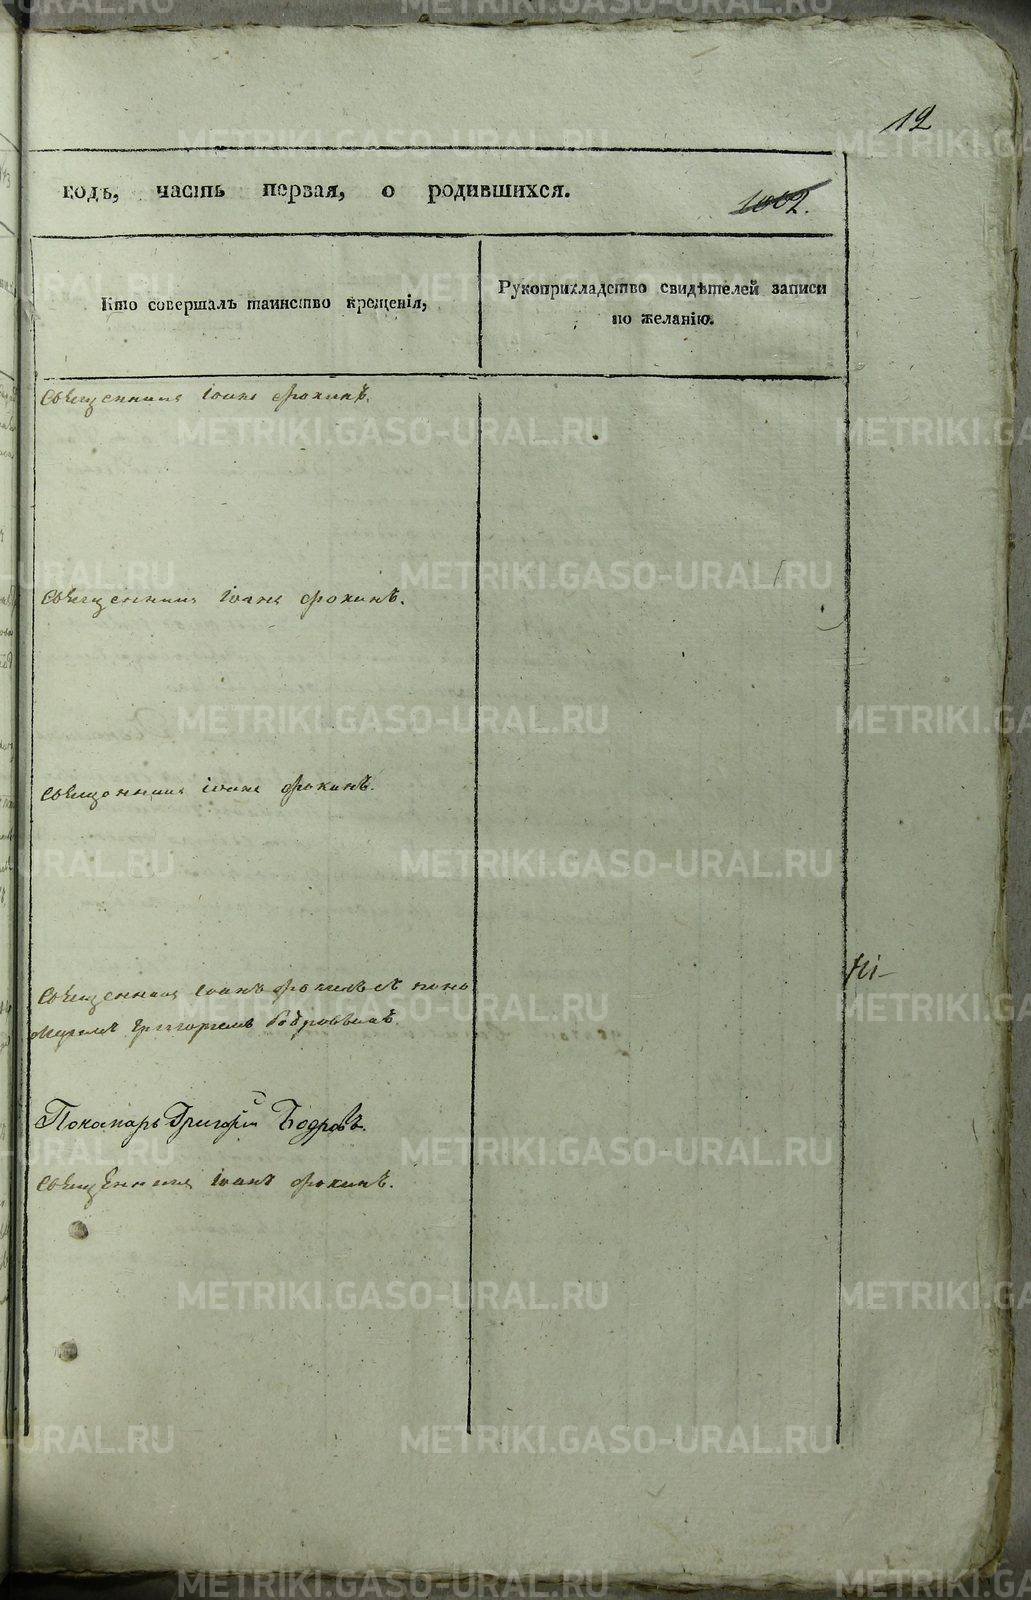 12
годъ, часть первая, о родившихся.
1002.
Кто совершалъ таинство крещенія,
Рукоприкладство свидѣтелей записи
по желанію.
Священникъ Іоанъ Фокинъ.
Священникъ Іоанъ Фокинъ.
Священникъ Іоанъ Фокинъ.
Священникъ Іоанъ Фокинъ съ поно
маремъ Григориемъ Бодровымъ.
Пономарь Григорій Бодровъ.
Священникъ Іоанъ Фокинъ.
METRIKI.GASO-URAL.RU